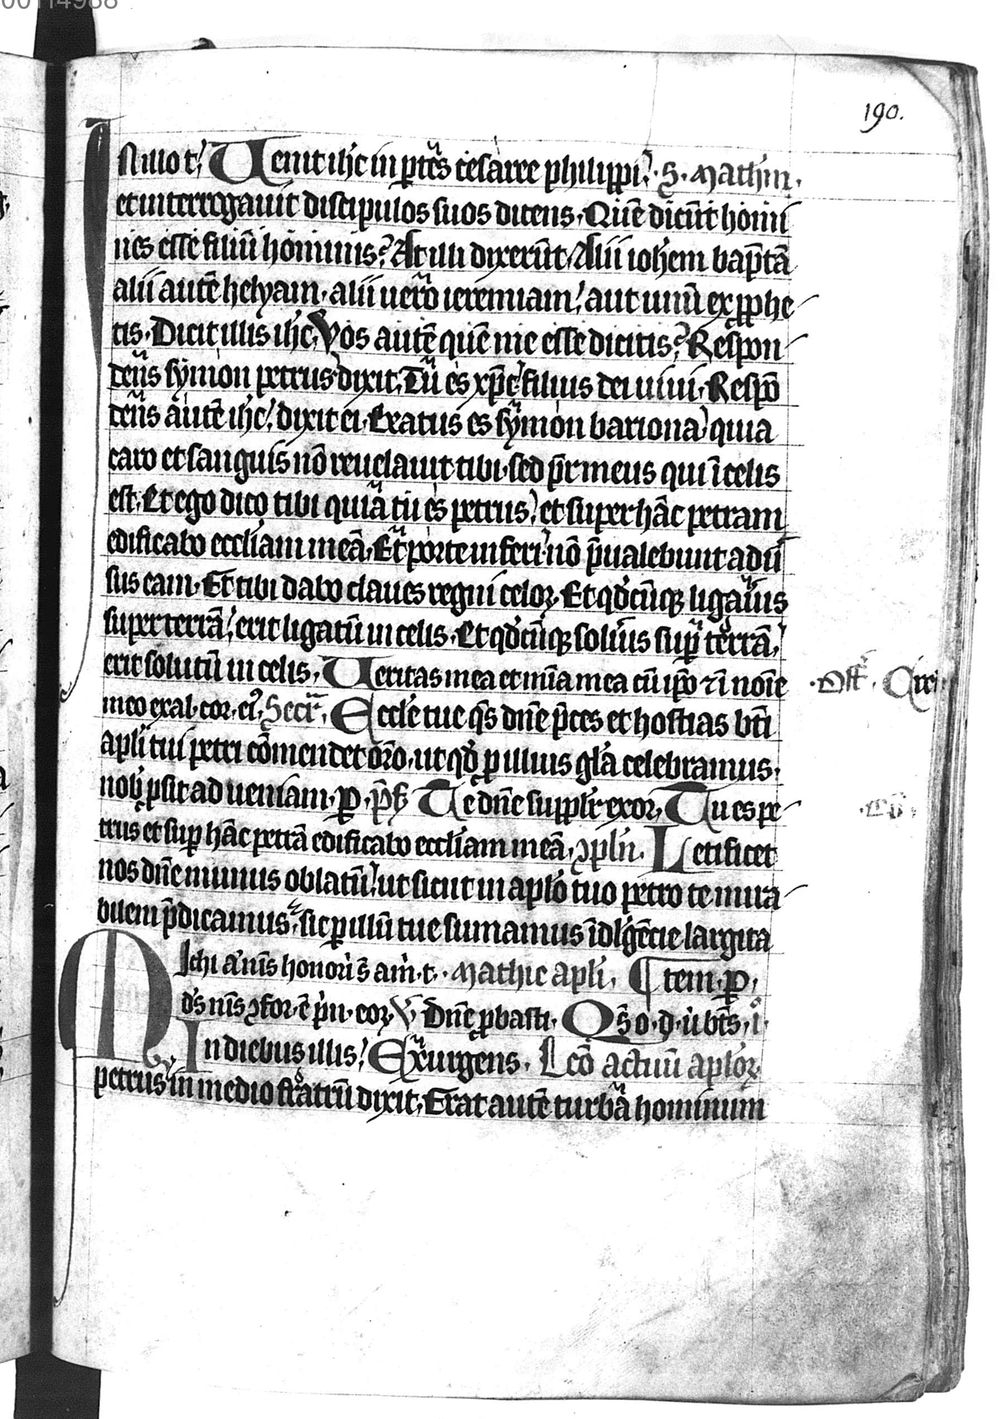 00114988
190.
N illo t̄. Uenit ih̄c in ꝑtes cesaree philippi. S. Mathm̄.
et interrogauit discipulos suos dicens. Quē dicūt homi
nes esse filiū hominis? At illi dixerūt. Alii ioh̄em bap̄tā
alii autē helyam. alii uero ieremiam. aut unū ex ꝓphe
tis. Dicit illis ih̄c. Vos autē quē me esse dicitis? Respon
dens symon petrus dixit. Tu es xp̄c filius dei uiui. Respō
dens autē ih̄c. dixit ei. Beatus es symon bariona. quia
caro et sanguis nō reuelauit tibi. sed pr̄ meus qui ī celis
est. Et ego dico tibi quia tu es petrus. et super hāc petram
edificabo eccliam meā. Et porte inferi nō p̄ualebunt aduer
sus eam. Et tibi dabo claues regni celoꝝ. Et qd̄cūqꝫ ligaueris
super terrā. erit ligatū in celis. Et qd̄cūqꝫ solueris super terrā.
erit solutū in celis. Ueritas mea et mīa mea cū ip̄o ⁊ ī noīe
Off̄.
meo exal. cor. ei. Secr̄. Eccle tue qs dn̄e p̄ces et hostias bt̄i
apli tui petri cōmendet oro. ut qd̄ ꝓ illius gl̄a celebramus.
nobis ꝓsit ad ueniam. ꝑ. Te dn̄e supplr̄ exor. Tu es pe
Cō.
trus et sup̄ hāc petrā edificabo eccliam meā. ꝯpln̄. Letificet
nos dn̄e munus oblatū. ut sicut in aplo tuo petro te mira
bilem p̄dicamus. sic ꝑ illū tue sumamus īdulgēcie largita
Michi a. nīs honor. s. am. t. Mathie apli. Item. ꝑ.
ds nīs ꝯfor. ē p̄n. eoꝝ V. Dn̄e ꝓbasti. Qs̄ o. d. ut bt̄s. i.
In diebus illis. Exurgens. Lc̄o actuū aploꝝ.
petrus in medio fratrū dixit. Erat autē turba hominum